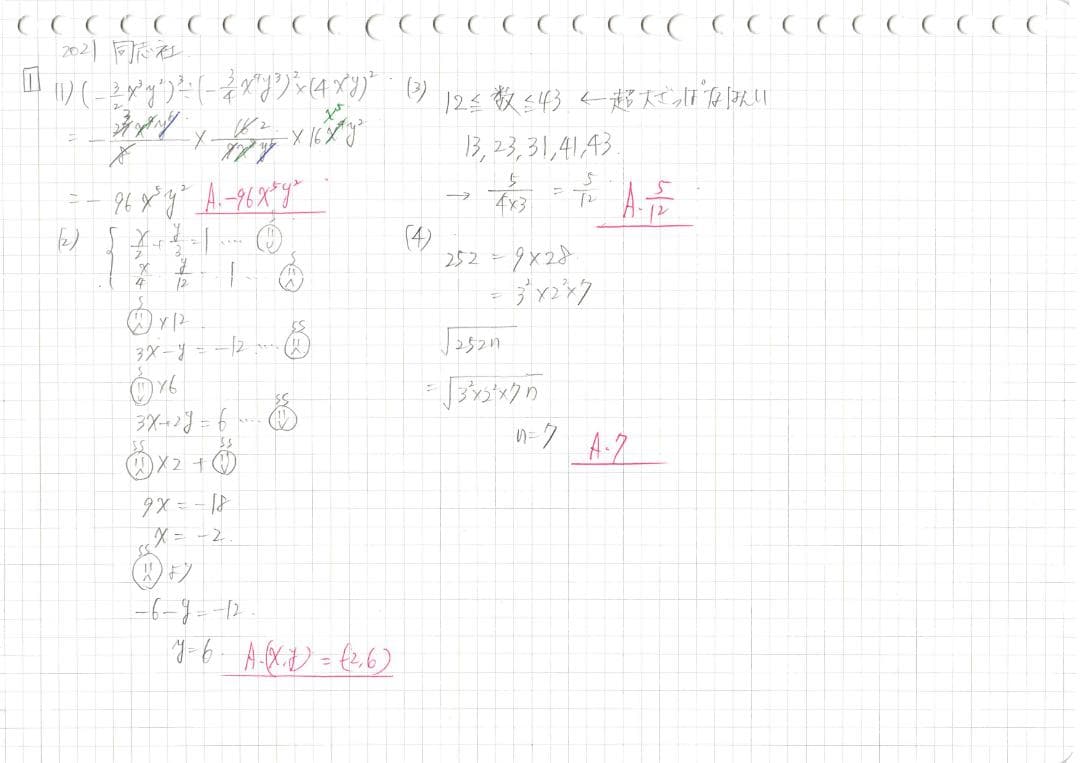 2021 同志社
1
(1) (-3/2 x³y²)³÷(-3/4 x⁴y³)²×(4x²y)²
= - 27x⁹y⁶/8 × 16/9x⁸y⁶ × 16x⁴y²
= - 96x⁵y² A.-96x⁵y²
(2) { x/2 + y/3 = 1 ....
x/4 - y/12 = -1 ...
×12
3x-y = -12 ....
×6
3x+2y = 6 ....
×2 +
9x = -18
x = -2.
より
-6-y = -12.
y=6. A.(x,y) = (-2,6)
(3)
12 ≦ 数 ≦ 43 ← 超大ざっぱなはんい
13, 23, 31, 41, 43.
→ 5/4×3 = 5/12 A. 5/12
(4)
252 = 9×28
= 3²×2²×7
√252n
= √3²×2²×7n
n=7 A.7